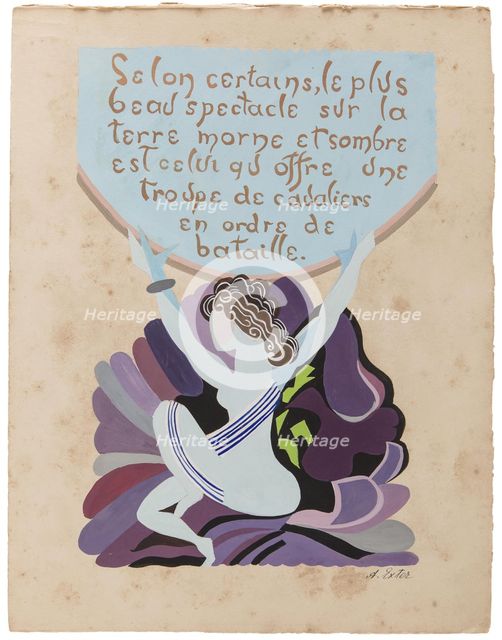 Selon certains, le plus
beau spectacle sur la
terre morne et sombre
est celui qu offre une
troupe de cavaliers
en ordre de
bataille.
Heritage Heritage
Heritage Heritage
Heritage Heritage
Heritage
A. Exter